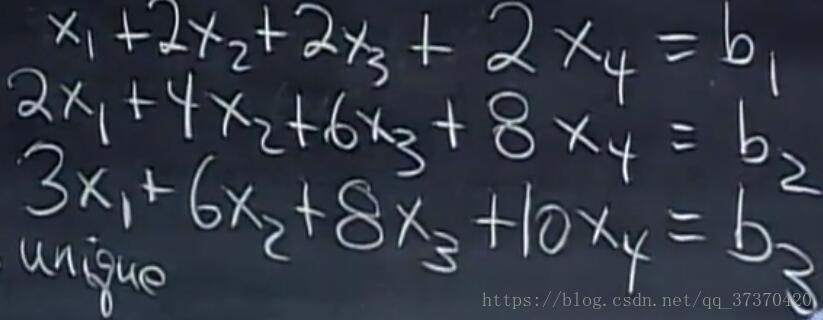 x₁ + 2x₂ + 2x₃ + 2x₄ = b₁
2x₁ + 4x₂ + 6x₃ + 8x₄ = b₂
3x₁ + 6x₂ + 8x₃ + 10x₄ = b₃
unique
https://blog.csdn.net/qq_37370420